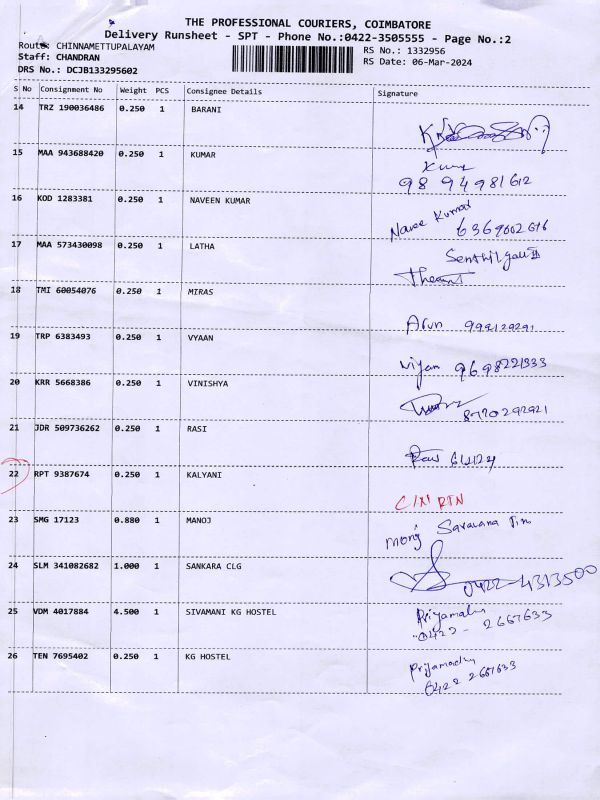 THE PROFESSIONAL COURIERS, COIMBATORE
Delivery Runsheet - SPT - Phone No.:0422-3505555 - Page No.:2
Route: CHINNAMETTUPALAYAM
RS No.: 1332956
Staff: CHANDRAN
RS Date: 06-Mar-2024
DRS No.: DCJB133295602
S No Consignment No Weight PCS Consignee Details Signature
14 TRZ 190036486 0.250 1 BARANI
15 MAA 943688420 0.250 1 KUMAR
98 94981612
16 KOD 1283381 0.250 1 NAVEEN KUMAR
Navee Kumar 6369002616
17 MAA 573430098 0.250 1 LATHA
18 TMI 60054076 0.250 1 MIRAS
Arun
19 TRP 6383493 0.250 1 VYAAN
9698221333
20 KRR 5668386 0.250 1 VINISHYA
8770292921
21 JDR 509736262 0.250 1 RASI
22 RPT 9387674 0.250 1 KALYANI
RTN
23 SMG 17123 0.880 1 MANOJ
Saravana
24 SLM 341082682 1.000 1 SANKARA CLG
0422-4313500
25 VDM 4017884 4.500 1 SIVAMANI KG HOSTEL
0422- 2667633
26 TEN 7695402 0.250 1 KG HOSTEL
0422 2667633